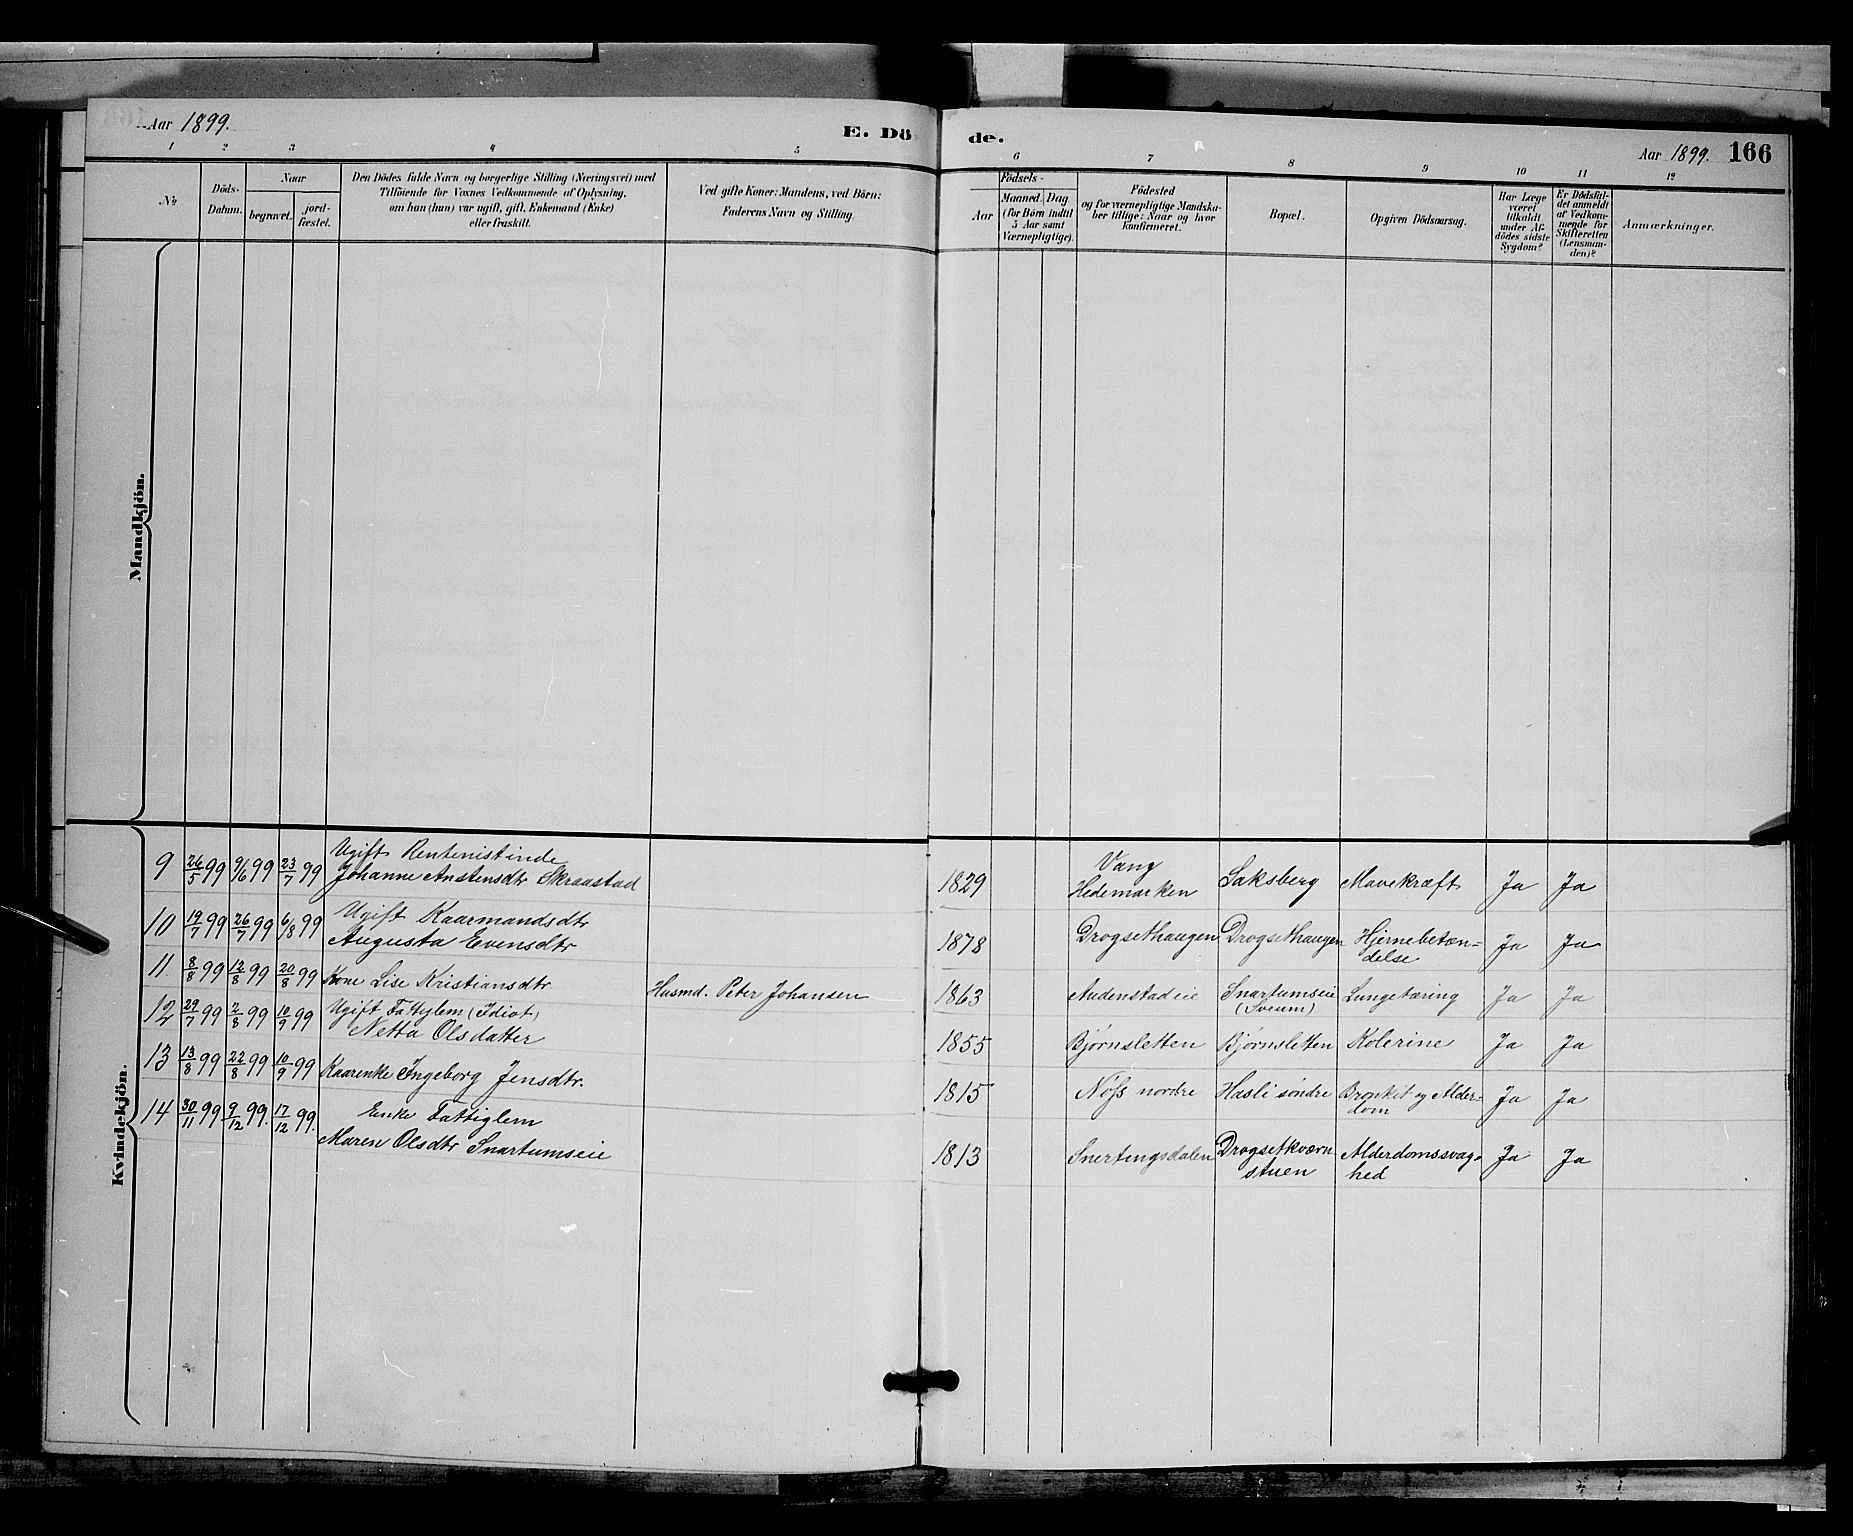 Aar 1899.
E. Döde.
Aar 1899. 166
1 2 3 4 5 6 7 8 9 10 11 12
No
Döds-
Datum.
Naar
begravet.
jord-
fæstet.
Den Dödes fulde Navn og borgerlige Stilling (Næringsvei) med
Tilföiende for Voxnes Vedkommende af Oplysning,
om han (hun) var ugift, gift, Enkemand (Enke)
eller fraskilt.
Ved gifte Koner: Mandens, ved Börn:
Faderens Navn og Stilling.
Födsels-
Aar
Maaned. Dag.
(for Börn indtil
5 Aar samt
Værnepligtige).
Födested
og for værnepligtige Mandska-
ber tillige: Naar og hvor
konfirmeret.
Bopæl.
Opgiven Dödsaarsag.
Har Læge
været
tilkaldt
under Af-
dödes sidste
Sygdom?
Er Dödsfal-
det anmeldt
af Vedkom-
mende for
Skifteretten
(Lensman-
den)?
Anmærkninger.
Mandkjön.
Kvindekjön.
9 26/5 99 9/6 99 23/7 99 Ugift Rentenistinde
Johanne Anstensdtr Skraastad
1829 Vang
Hedemarken Saksberg Mavekræft Ja Ja
10 19/7 99 26/7 99 6/8 99 Ugift Kaarmandsdtr
Augusta Evensdtr
1878 Drogsethaugen Drogsethaugen Hjernebetæn-
delse Ja Ja
11 8/8 99 12/8 99 20/8 99 Kone Lise Kristiansdtr Husmd. Peter Johansen
1863 Audenstadeie Snartumseie
(Sveum) Lungetæring Ja Ja
12 29/7 99 2/8 99 10/9 99 Ugift Fattiglem (Idiot)
Netta Olsdatter
1855 Bjørnsletten Bjørnsletten Kolerine Ja Ja
13 13/8 99 22/8 99 10/9 99 Kaarenke Ingeborg Jensdtr.
1815 Nøss nordre Hasli søndre Bronkit og Alder-
dom Ja Ja
14 30/11 99 9/12 99. 17/12 99. Enke Fattiglem
Maren Olsdtr Snartumseie
1813 Snertingsdalen Drogsetkværn
stuen Alderdomssvag-
hed Ja Ja